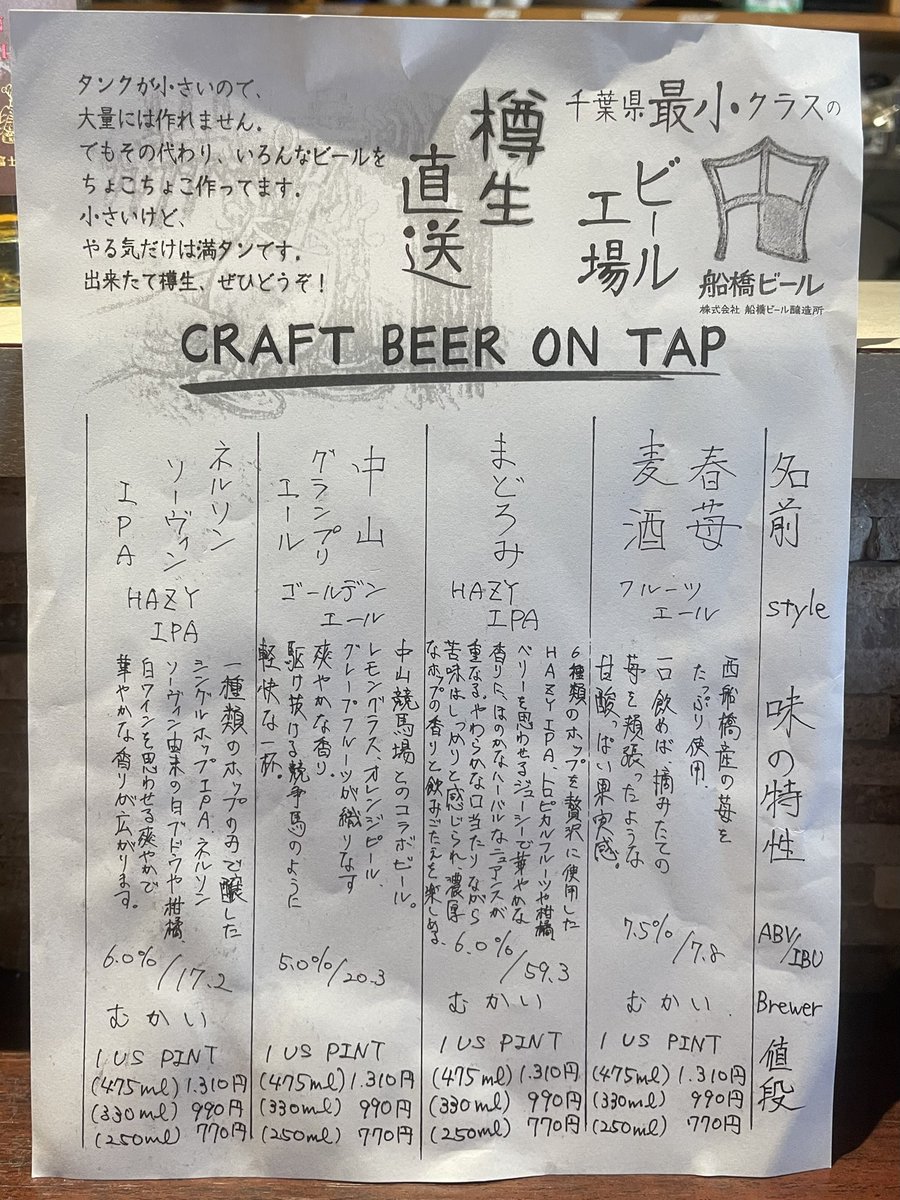 千葉県最小クラスの
ビール
工場
船橋ビール
株式会社 船橋ビール醸造所
樽生
直送
タンクが小さいので、
大量には作れません。
でもその代わり、いろんなビールを
ちょこちょこ作ってます。
小さいけど、
やる気だけは満タンです。
出来たて樽生、ぜひどうぞ！
CRAFT BEER ON TAP
名前
style
味の特性
ABV/IBU
Brewer
値段
春苺
麦酒
フルーツ
エール
西船橋産の苺を
たっぷり使用。
一口飲めば、摘みたての
苺を頬張ったような
甘酸っぱい果実感。
7.5%/7.8
むかい
1 US PINT
(475ml) 1.310円
(330ml) 990円
(250ml) 770円
まどろみ
HAZY
IPA
6種類のホップを贅沢に使用した
HAZY IPA。トロピカルフルーツや柑橘、
ベリーを思わせるジューシーで華やかな
香りに、ほのかなハーバルなニュアンスが
重なる。やわらかな口当たりながら
苦味はしっかりと感じられ、濃厚
なホップの香りと飲みごたえを楽しめる。
6.0%/59.3
むかい
1 US PINT
(475ml) 1.310円
(330ml) 990円
(250ml) 770円
中山
グランプリ
エール
ゴールデン
エール
中山競馬場とのコラボビール。
レモングラス、オレンジピール、
グレープフルーツが織りなす
爽やかな香り。
駆け抜ける競争馬のように
軽快な一杯。
5.0%/20.3
むかい
1 US PINT
(475ml) 1.310円
(330ml) 990円
(250ml) 770円
ネルソン
ソーヴィン
IPA
HAZY
IPA
一種類のホップのみで醸した
シングルホップIPA。ネルソン
ソーヴィン由来の白ブドウや柑橘、
白ワインを思わせる爽やかで
華やかな香りが広がります。
6.0%/17.2
むかい
1 US PINT
(475ml) 1.310円
(330ml) 990円
(250ml) 770円